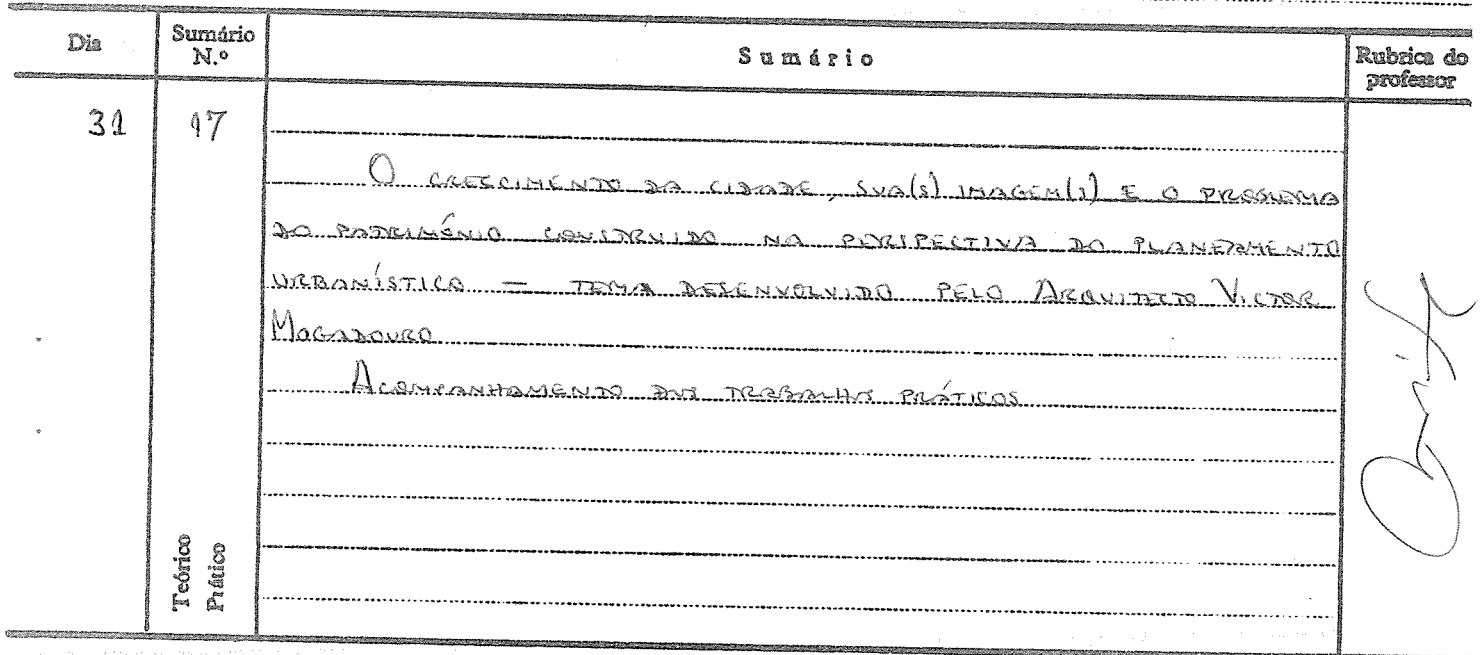 Dia Sumário N.º Sumário Rubrica do professor
31 17
O CRESCIMENTO DA CIDADE, SUA(S) IMAGEM(S) E O PROBLEMA
DO PATRIMÓNIO CONSTRUIDO NA PERSPECTIVA DO PLANEAMENTO
URBANÍSTICO = TEMA DESENVOLVIDO PELO ARQUITECTO VICTOR
MOGADOURO
ACOMPANHAMENTO DOS TRABALHOS PRÁTICOS
Teórico
Prático